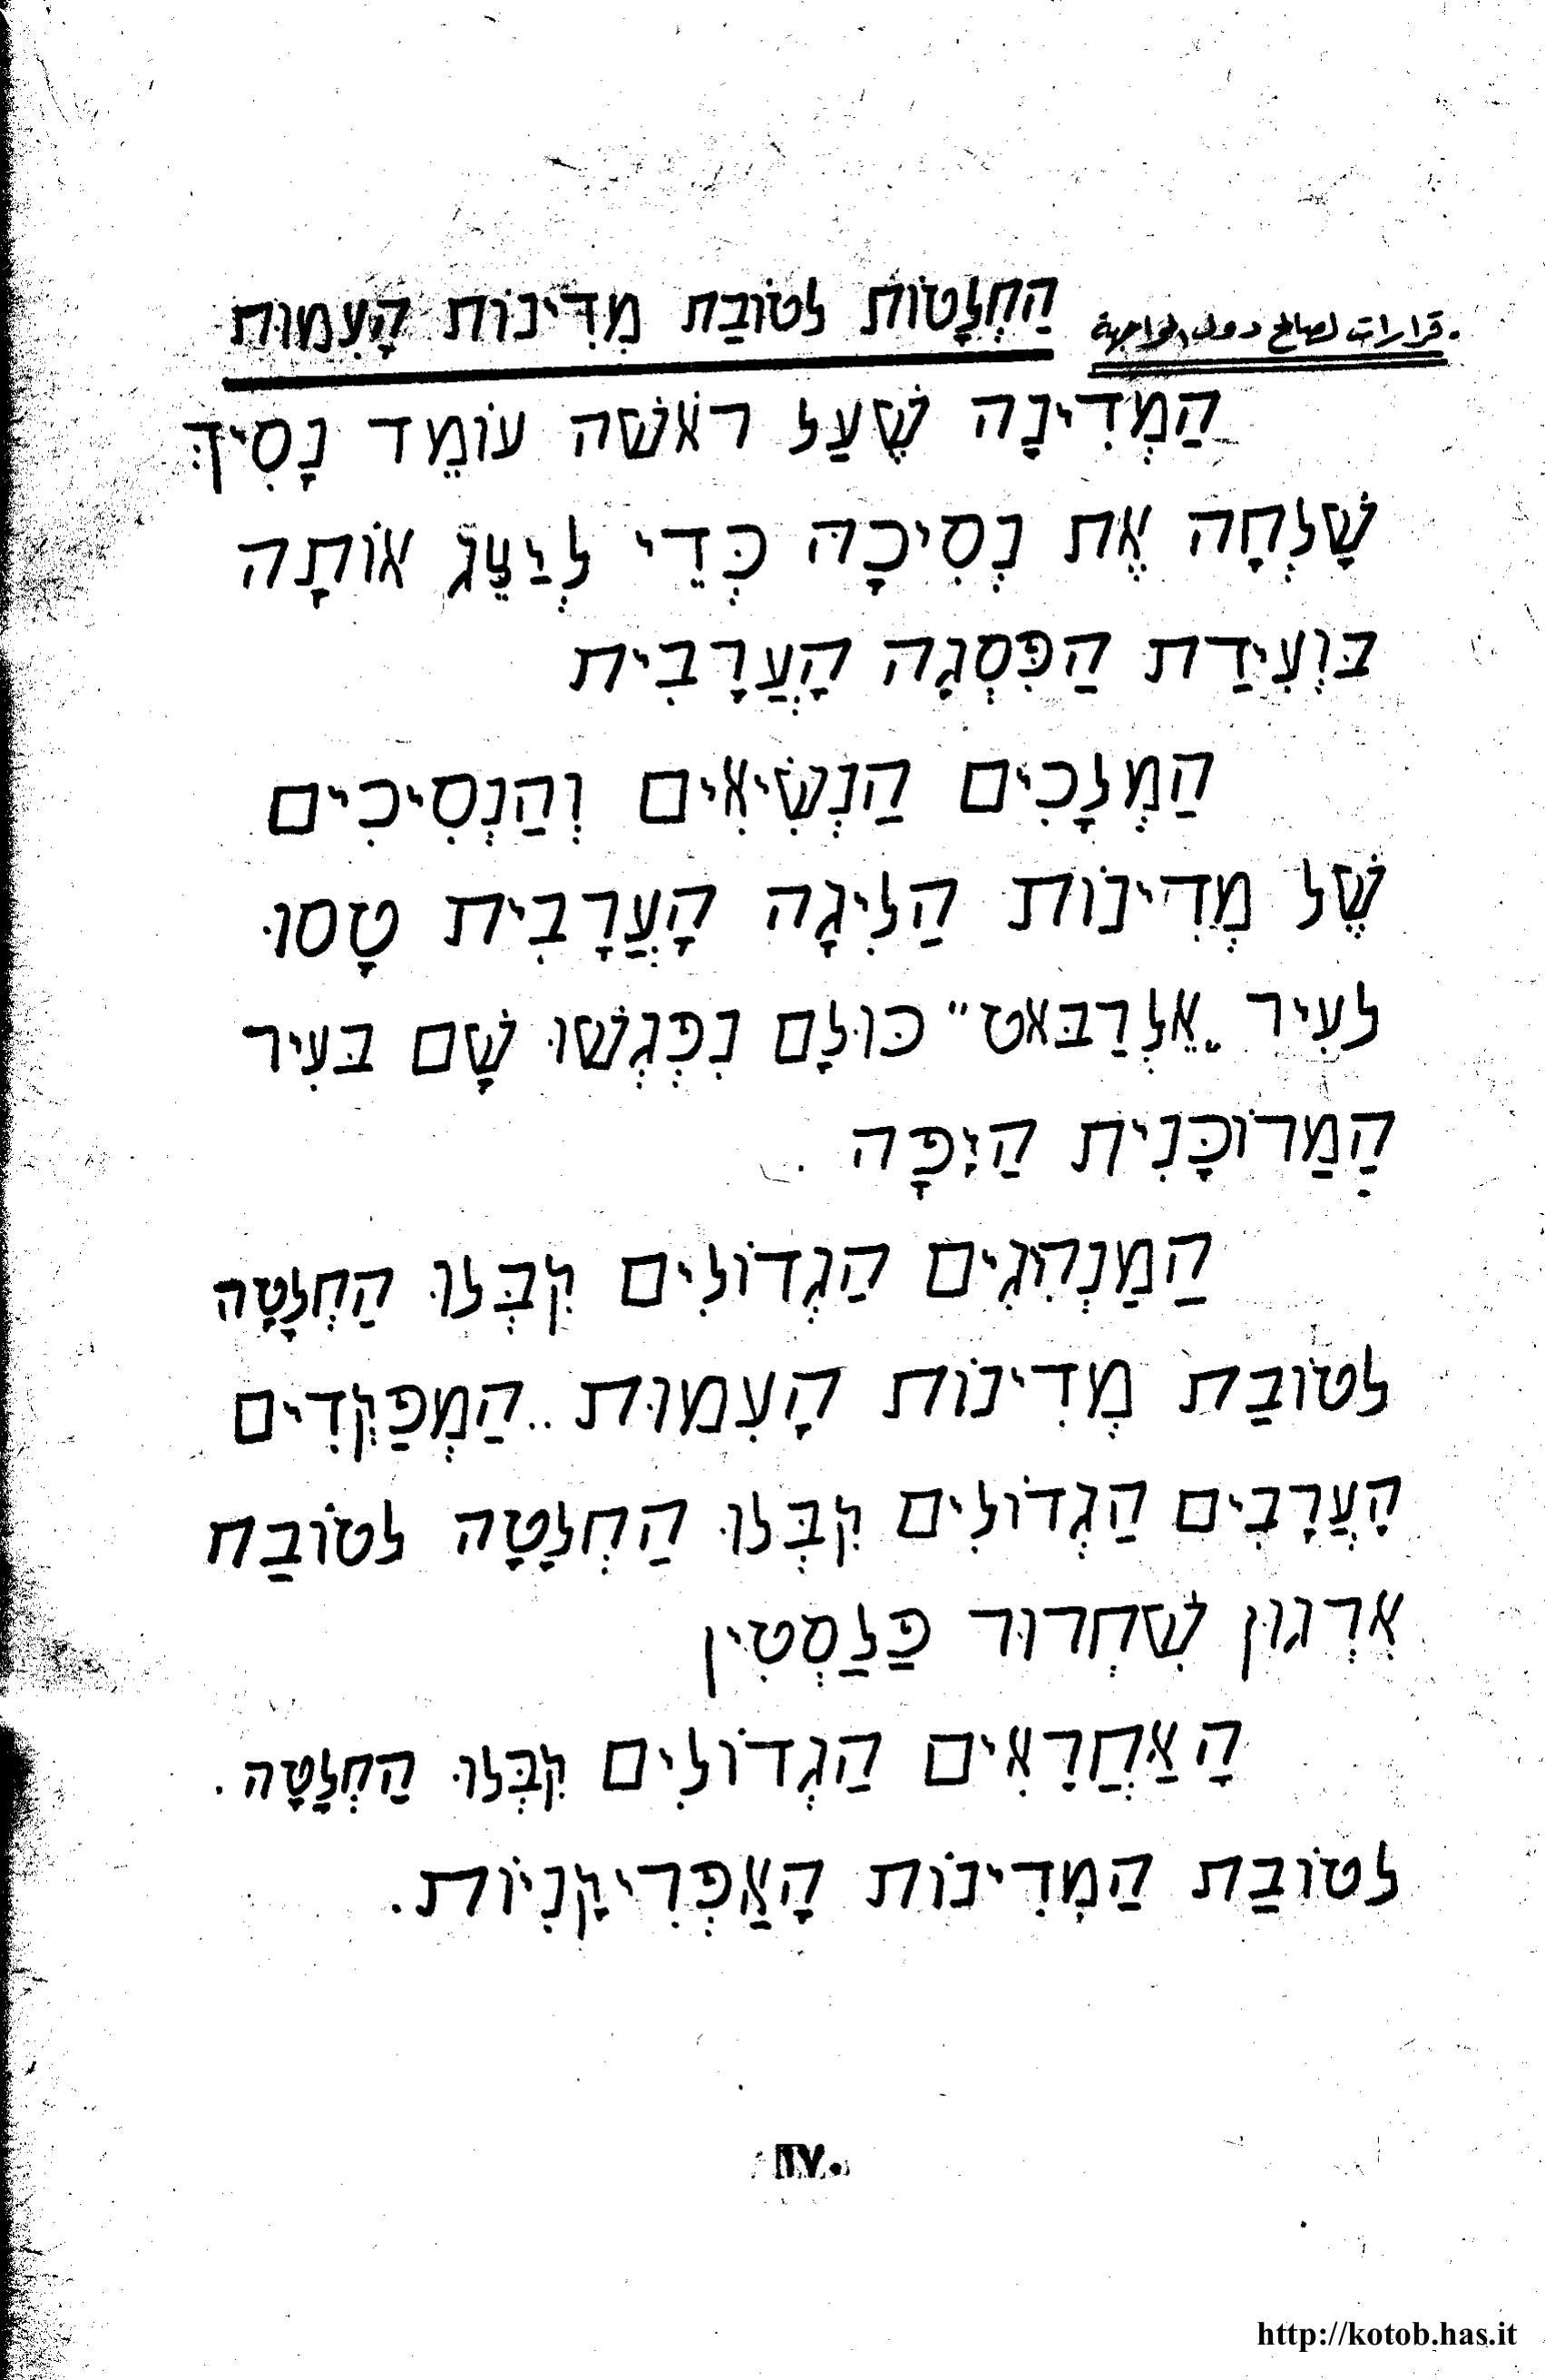 הַחְלָטוֹת לטוֹבַת מְדִינוֹת הָעִמוּת قرارات لصالح دول المواجهة.
הַמְדִינָה שֶׁעַל רֹאשׁה עוֹמֵד נָסִיךְ
שָׁלְחָה אֶת נְסִיכָהּ כְּדֵי לְיַצֵּג אוֹתָה
בּוְעִידַת הַפִּסְגָה הָעֲרָבִית
הַמְלָכִים הַנְשִׂיאִים וְהַנְסִיכִים
שֶׁל מְדִינוֹת הַלִיגָה הָעֲרָבִית טָסוּ
לעִיר „אֵלְרַבּאט״ כּוּלָם נִפְגְשׁוּ שָׁם בּעִיר
הַמַרוֹכָּנִית הַיָפָה .
הַמַנְהִגִים הַגְדוֹלִים קִבְּלוּ הַחְלָטָה
לטוֹבַת מְדִינוֹת הָעִמוּת .. הַמְפַקְדִים
הָעֲרָבִים הַגְדוֹלִים קִבְּלוּ הַחְלָטָה לטוֹבַת
אִרְגוּן שִׁחְרוּר פַּלַסְטִין
הָאַחֲרַאִים הַגְדוֹלִים קִבְּלוּ הַחְלָטָה .
לטוֹבַת הַמְדִינוֹת הָאַפְרִיקָנִיוֹת .
١٧
http://kotob.has.it